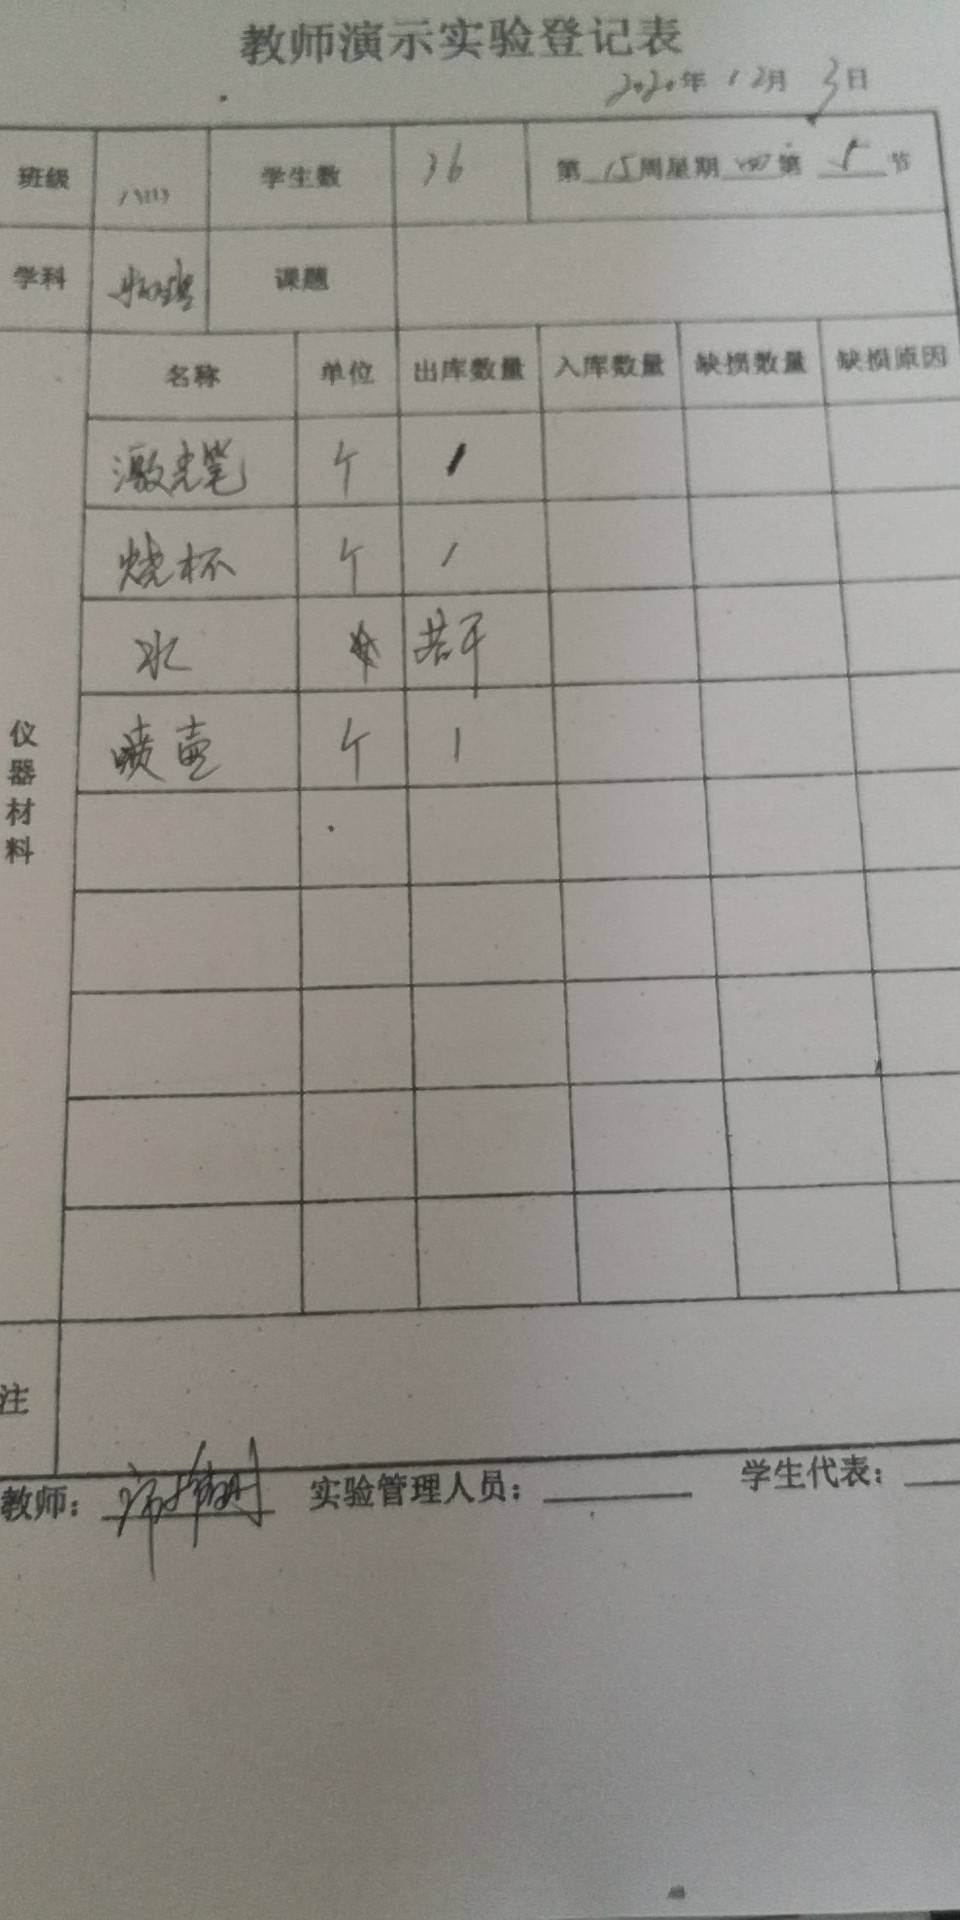 教师演示实验登记表
2020年12月3日
班级 学生数 36 第15周星期四第5节
学科 物理 课题
名称 单位 出库数量 入库数量 缺损数量 缺损原因
激光笔 个 1
烧杯 个 1
水 若干
喷壶 个 1
仪器材料
注
教师： 实验管理人员： 学生代表：